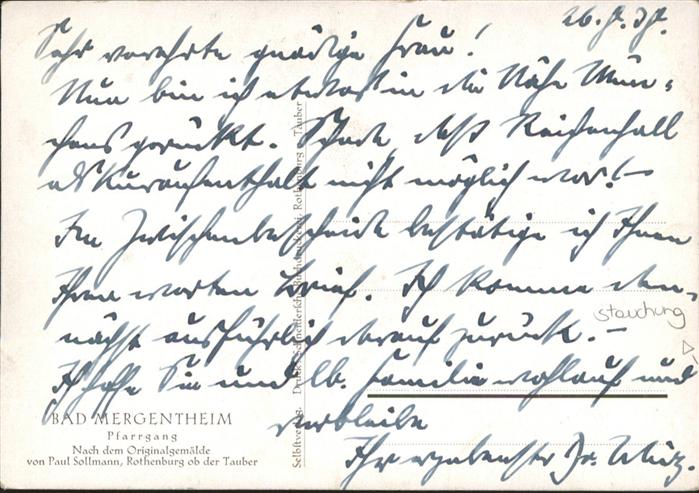 26.8.38.
Sehr verehrte gnädige Frau!
Nun bin ich etwas in die Nähe Mün-
chens gerückt. Schade, daß Reichenhall
als Kuraufenthalt nicht möglich war! –
Im Zwischenbescheide bestätige ich Ihnen
Ihren werten Brief. Ich komme dem-
nächst ausführlich darauf zurück. –
Ich hoffe Sie und lb. Familie wohlauf und
verbleibe
Ihr ergebenster Dr.
stauchung
BAD MERGENTHEIM
Pfarrgang
Nach dem Originalgemälde
von Paul Sollmann, Rothenburg ob der Tauber
Selbstverlag. Druck: Schneidersche Buchdruckerei, Rothenburg o. Tauber